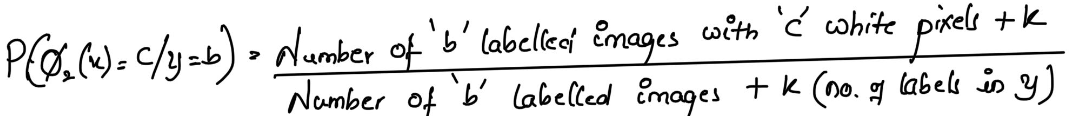 P(Ø₂(x)=c/y=b) = Number of 'b' labelled images with 'c' white pixels + k
Number of 'b' labelled images + k (no. of labels in y)